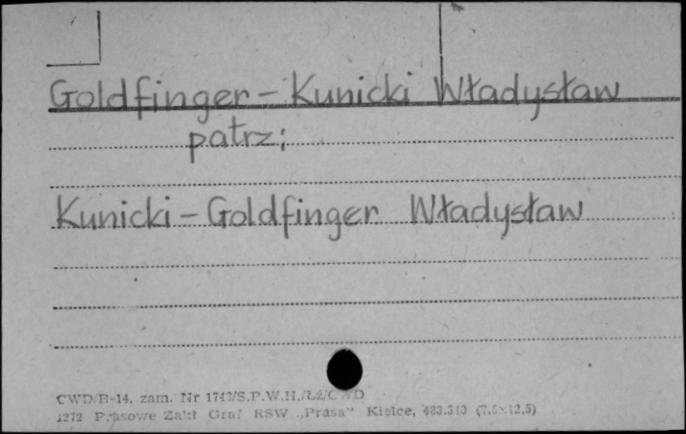 Goldfinger - Kunicki Władysław
patrz:
Kunicki - Goldfinger Władysław
CWD/B-14. zam. Nr 1743/S.P.W.H.
1272 Prasowe Zakł Graf RSW „Prasa" Kielce, (7.5×12.5)